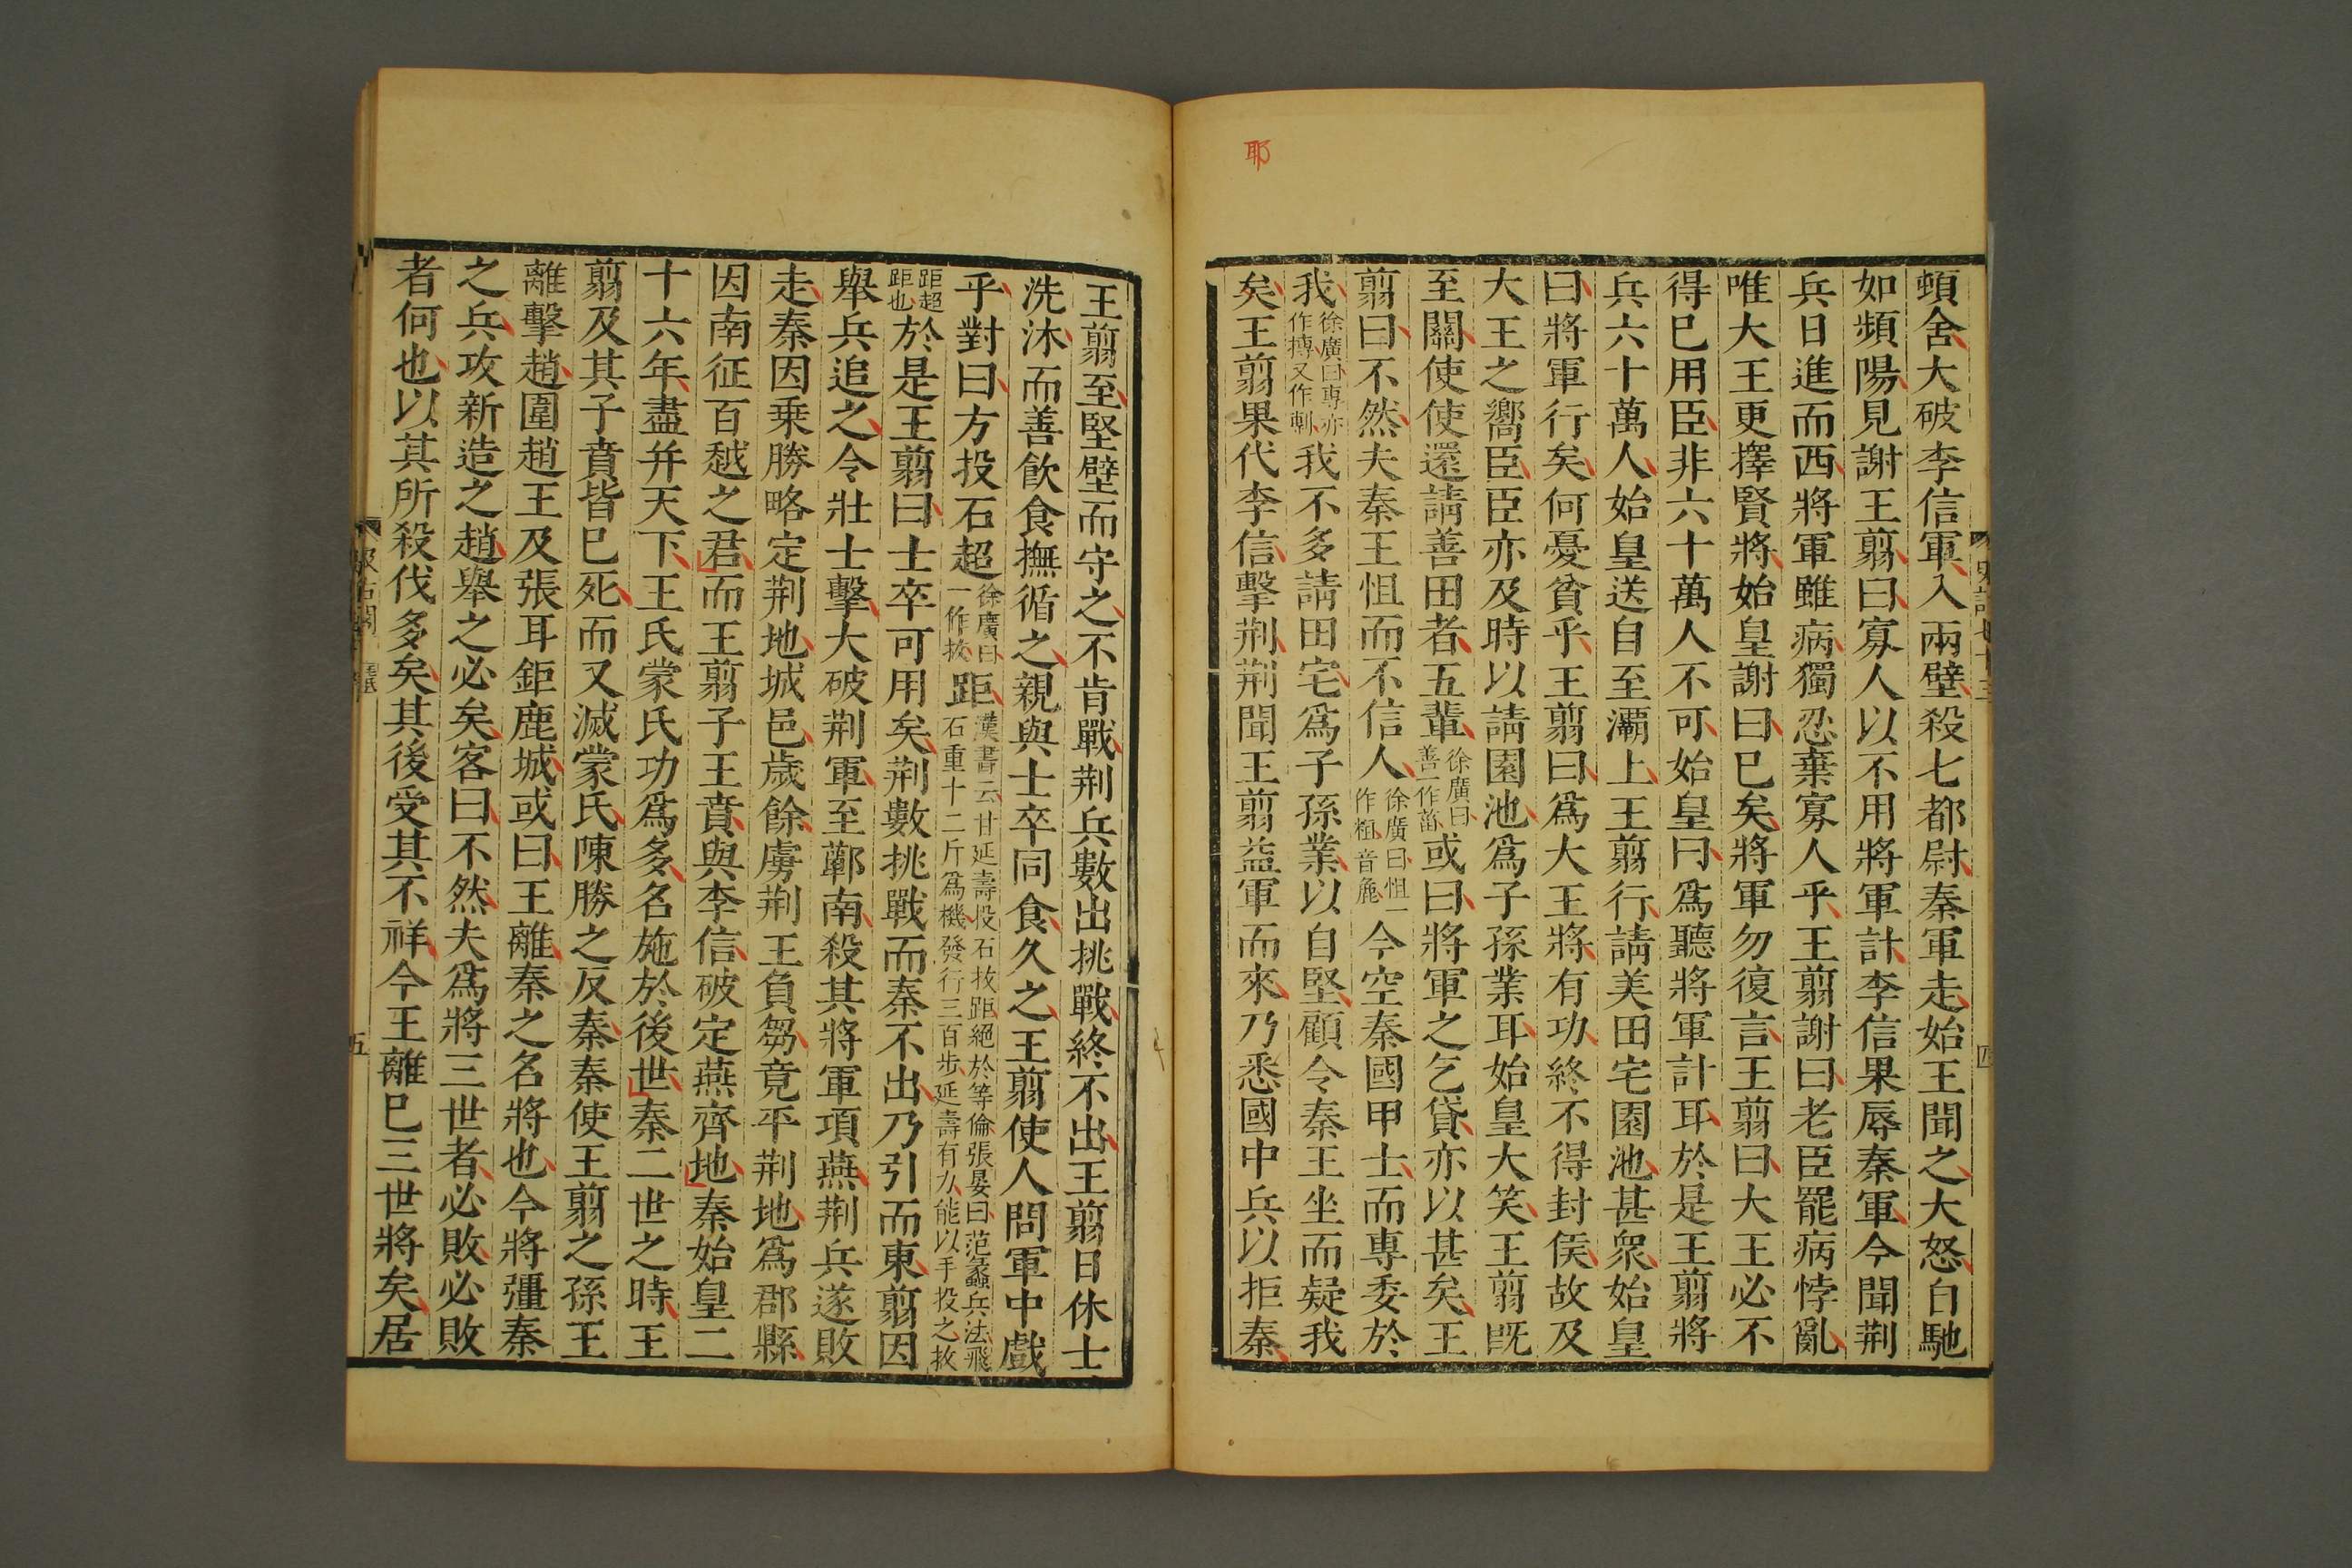 耶
頓舍大破李信軍入兩壁殺七都尉秦軍走始王聞之大怒自馳
如頻陽見謝王翦曰寡人以不用將軍計李信果辱秦軍今聞荆
兵日進而西將軍雖病獨忍棄寡人乎王翦謝曰老臣罷病悖亂
唯大王更擇賢將始皇謝曰已矣將軍勿復言王翦曰大王必不
得已用臣非六十萬人不可始皇曰爲聽將軍計耳於是王翦將
兵六十萬人始皇送自至灞上王翦行請美田宅園池甚衆始皇
曰將軍行矣何憂貧乎王翦曰爲大王將有功終不得封侯故及
大王之嚮臣臣亦及時以請園池爲子孫業耳始皇大笑王翦旣
至關使使還請善田者五輩徐廣曰善一作菑或曰將軍之乞貸亦以甚矣王
翦曰不然夫秦王怚而不信人徐廣曰怚一作粗音麁今空秦國甲士而專委於
我徐廣曰專亦作摶又作剸我不多請田宅爲子孫業以自堅顧令秦王坐而疑我
矣王翦果代李信擊荆荆聞王翦益軍而來乃悉國中兵以拒秦
王翦至堅壁而守之不肯戰荆兵數出挑戰終不出王翦日休士
洗沐而善飮食撫循之親與士卒同食久之王翦使人問軍中戲
乎對曰方投石超徐廣曰一作拔距漢書云甘延壽投石拔距絕於等倫張晏曰范蠡兵法飛石重十二斤爲機發行三百步延壽有力能以手投之拔
距超距也於是王翦曰士卒可用矣荆數挑戰而秦不出乃引而東翦因
舉兵追之令壯士擊大破荆軍至蘄南殺其將軍項燕荆兵遂敗
走秦因乘勝略定荆地城邑歲餘虜荆王負芻竟平荆地爲郡縣
因南征百越之君而王翦子王賁與李信破定燕齊地秦始皇二
十六年盡并天下王氏蒙氏功爲多名施於後世秦二世之時王
翦及其子賁皆已死而又滅蒙氏陳勝之反秦秦使王翦之孫王
離擊趙圍趙王及張耳鉅鹿城或曰王離秦之名將也今將彊秦
之兵攻新造之趙舉之必矣客曰不然夫爲將三世者必敗必敗
者何也以其所殺伐多矣其後受其不祥今王離已三世將矣居
五